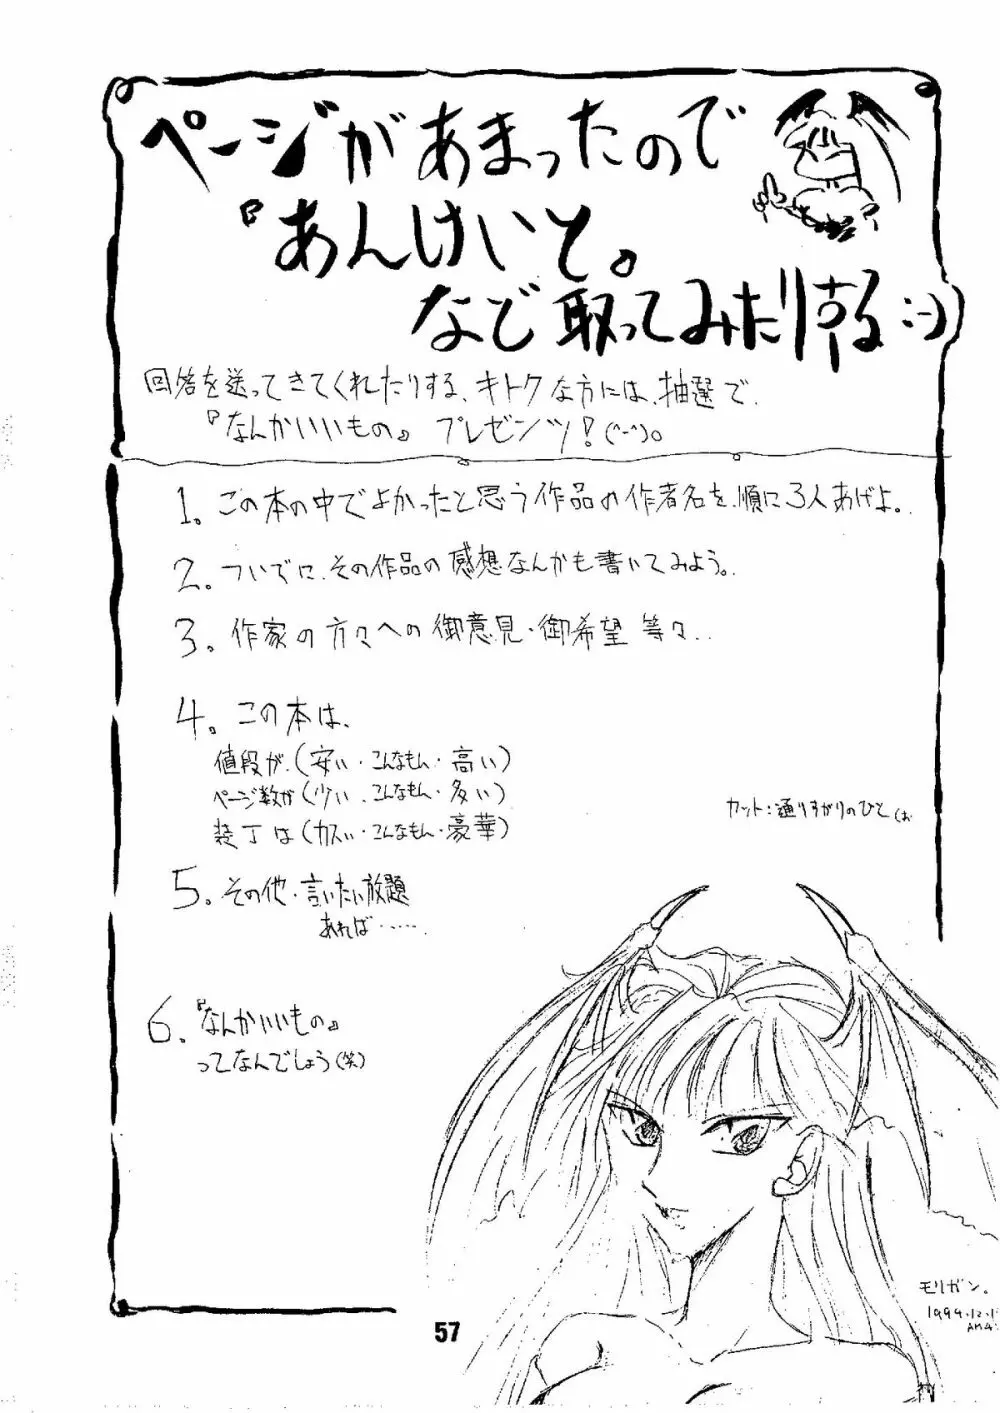 ページがあまったので
『あんけいと。
など取ってみたりする:-)
回答を送ってきてくれたりする、キトクな方には、抽選で、
『なんかいいもの』 プレゼンツ!(^-^)。
1。この本の中でよかったと思う作品の作者名を、順に3人あげよ。
2。ついでに、その作品の感想なんかも書いてみよう。
3。作家の方々への御意見・御希望等々..
4。この本は、
値段が、(安い・こんなもん・高い)
ページ数が(少い・こんなもん・多い)
装丁は(カスい・こんなもん・豪華)
カット:通りすがりのひと(お
5。その他・言いたい放題
あれば……
6。『なんかいいもの』
ってなんでしょう(笑)
モリガン。
57